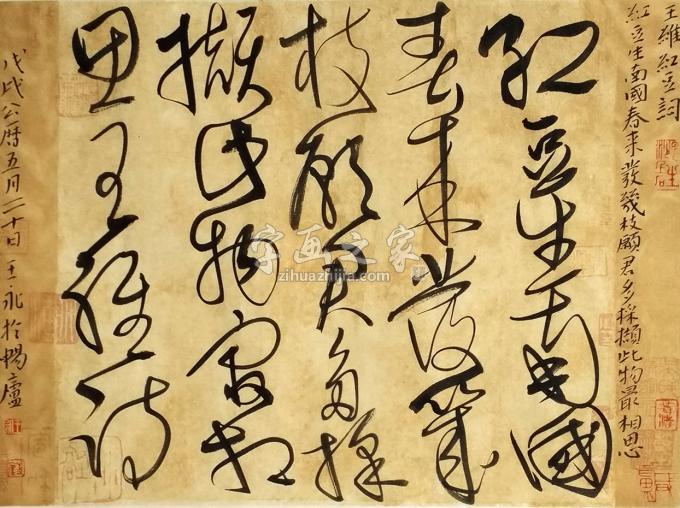 王維紅豆詞
紅豆生南國春来發幾枝願君多採擷此物最相思
紅豆生南國
春来發幾
枝願君多採
擷此物最相
思王維詩
戊戌公暦五月二十日王永於暢廬
字画之家
zihuazhijia.com